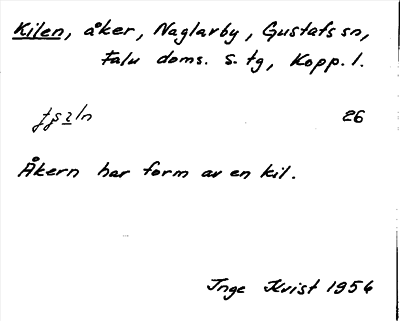 Kilen, åker, Naglarby, Gustafs sn,
Falu doms. s. tg, Kopp. l.
26
Åkern har form av en kil.
Inge Kvist 1956